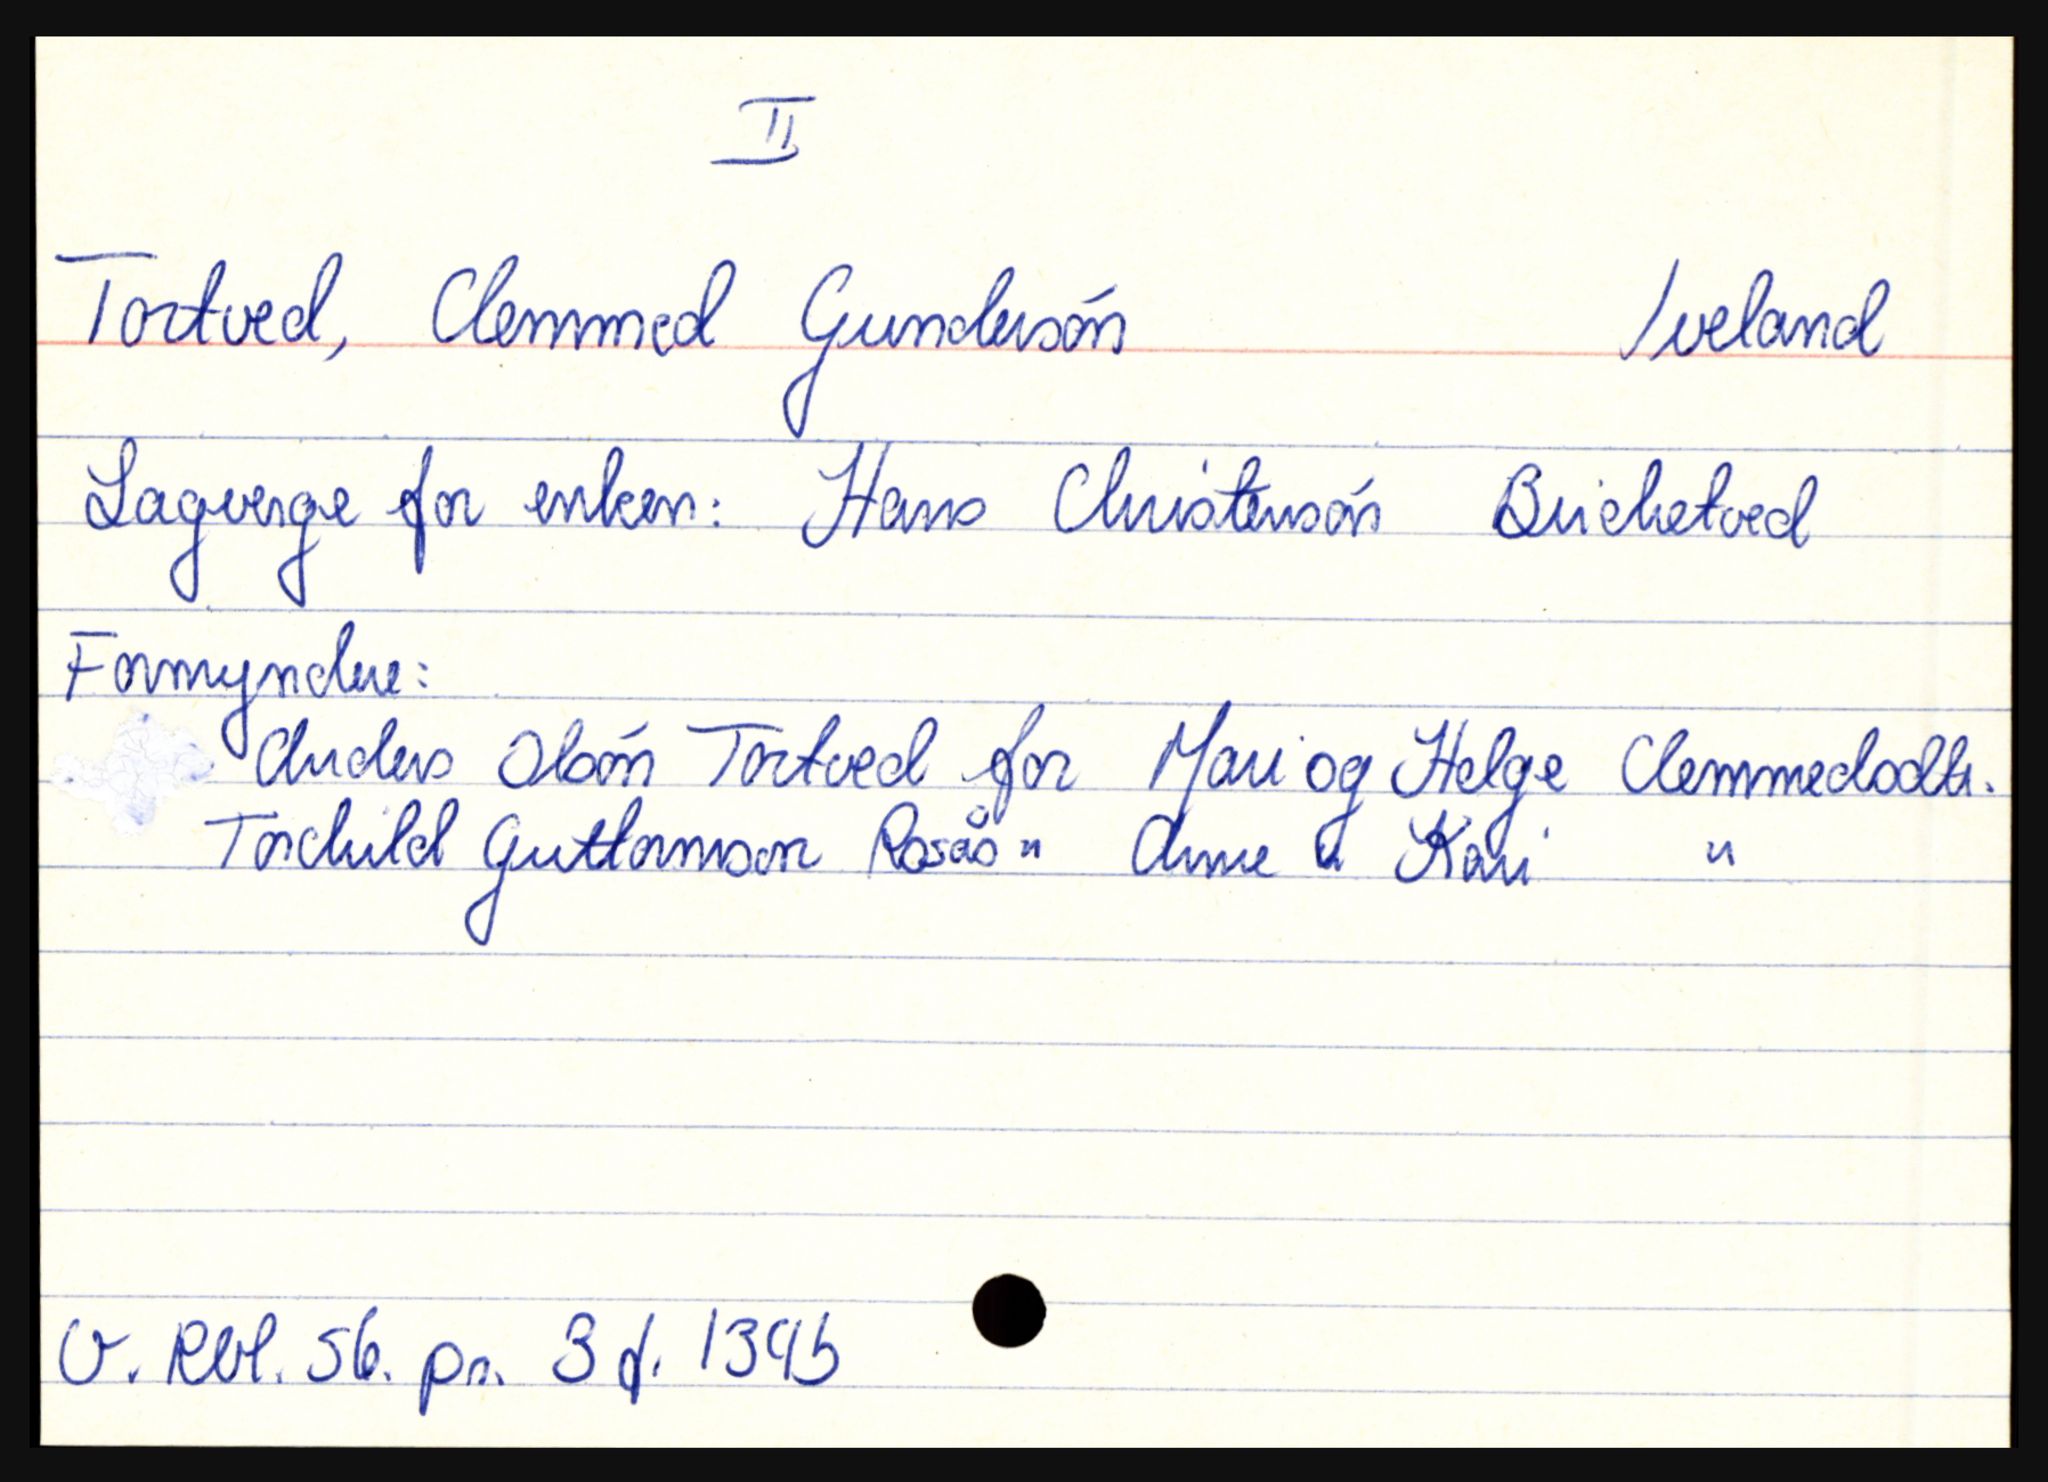 II
Tortved, Clemmed Gundersön Iveland
Lagverge for enken: Hans Christensön Birchetved
Formyndere:
Anders Olsön Tortved for Mari og Helge Clemmedsdtr.
Torchild Guttormson Rosås " Anne " Kari "
V. Rbl. 5b. pr. 3 f. 139b